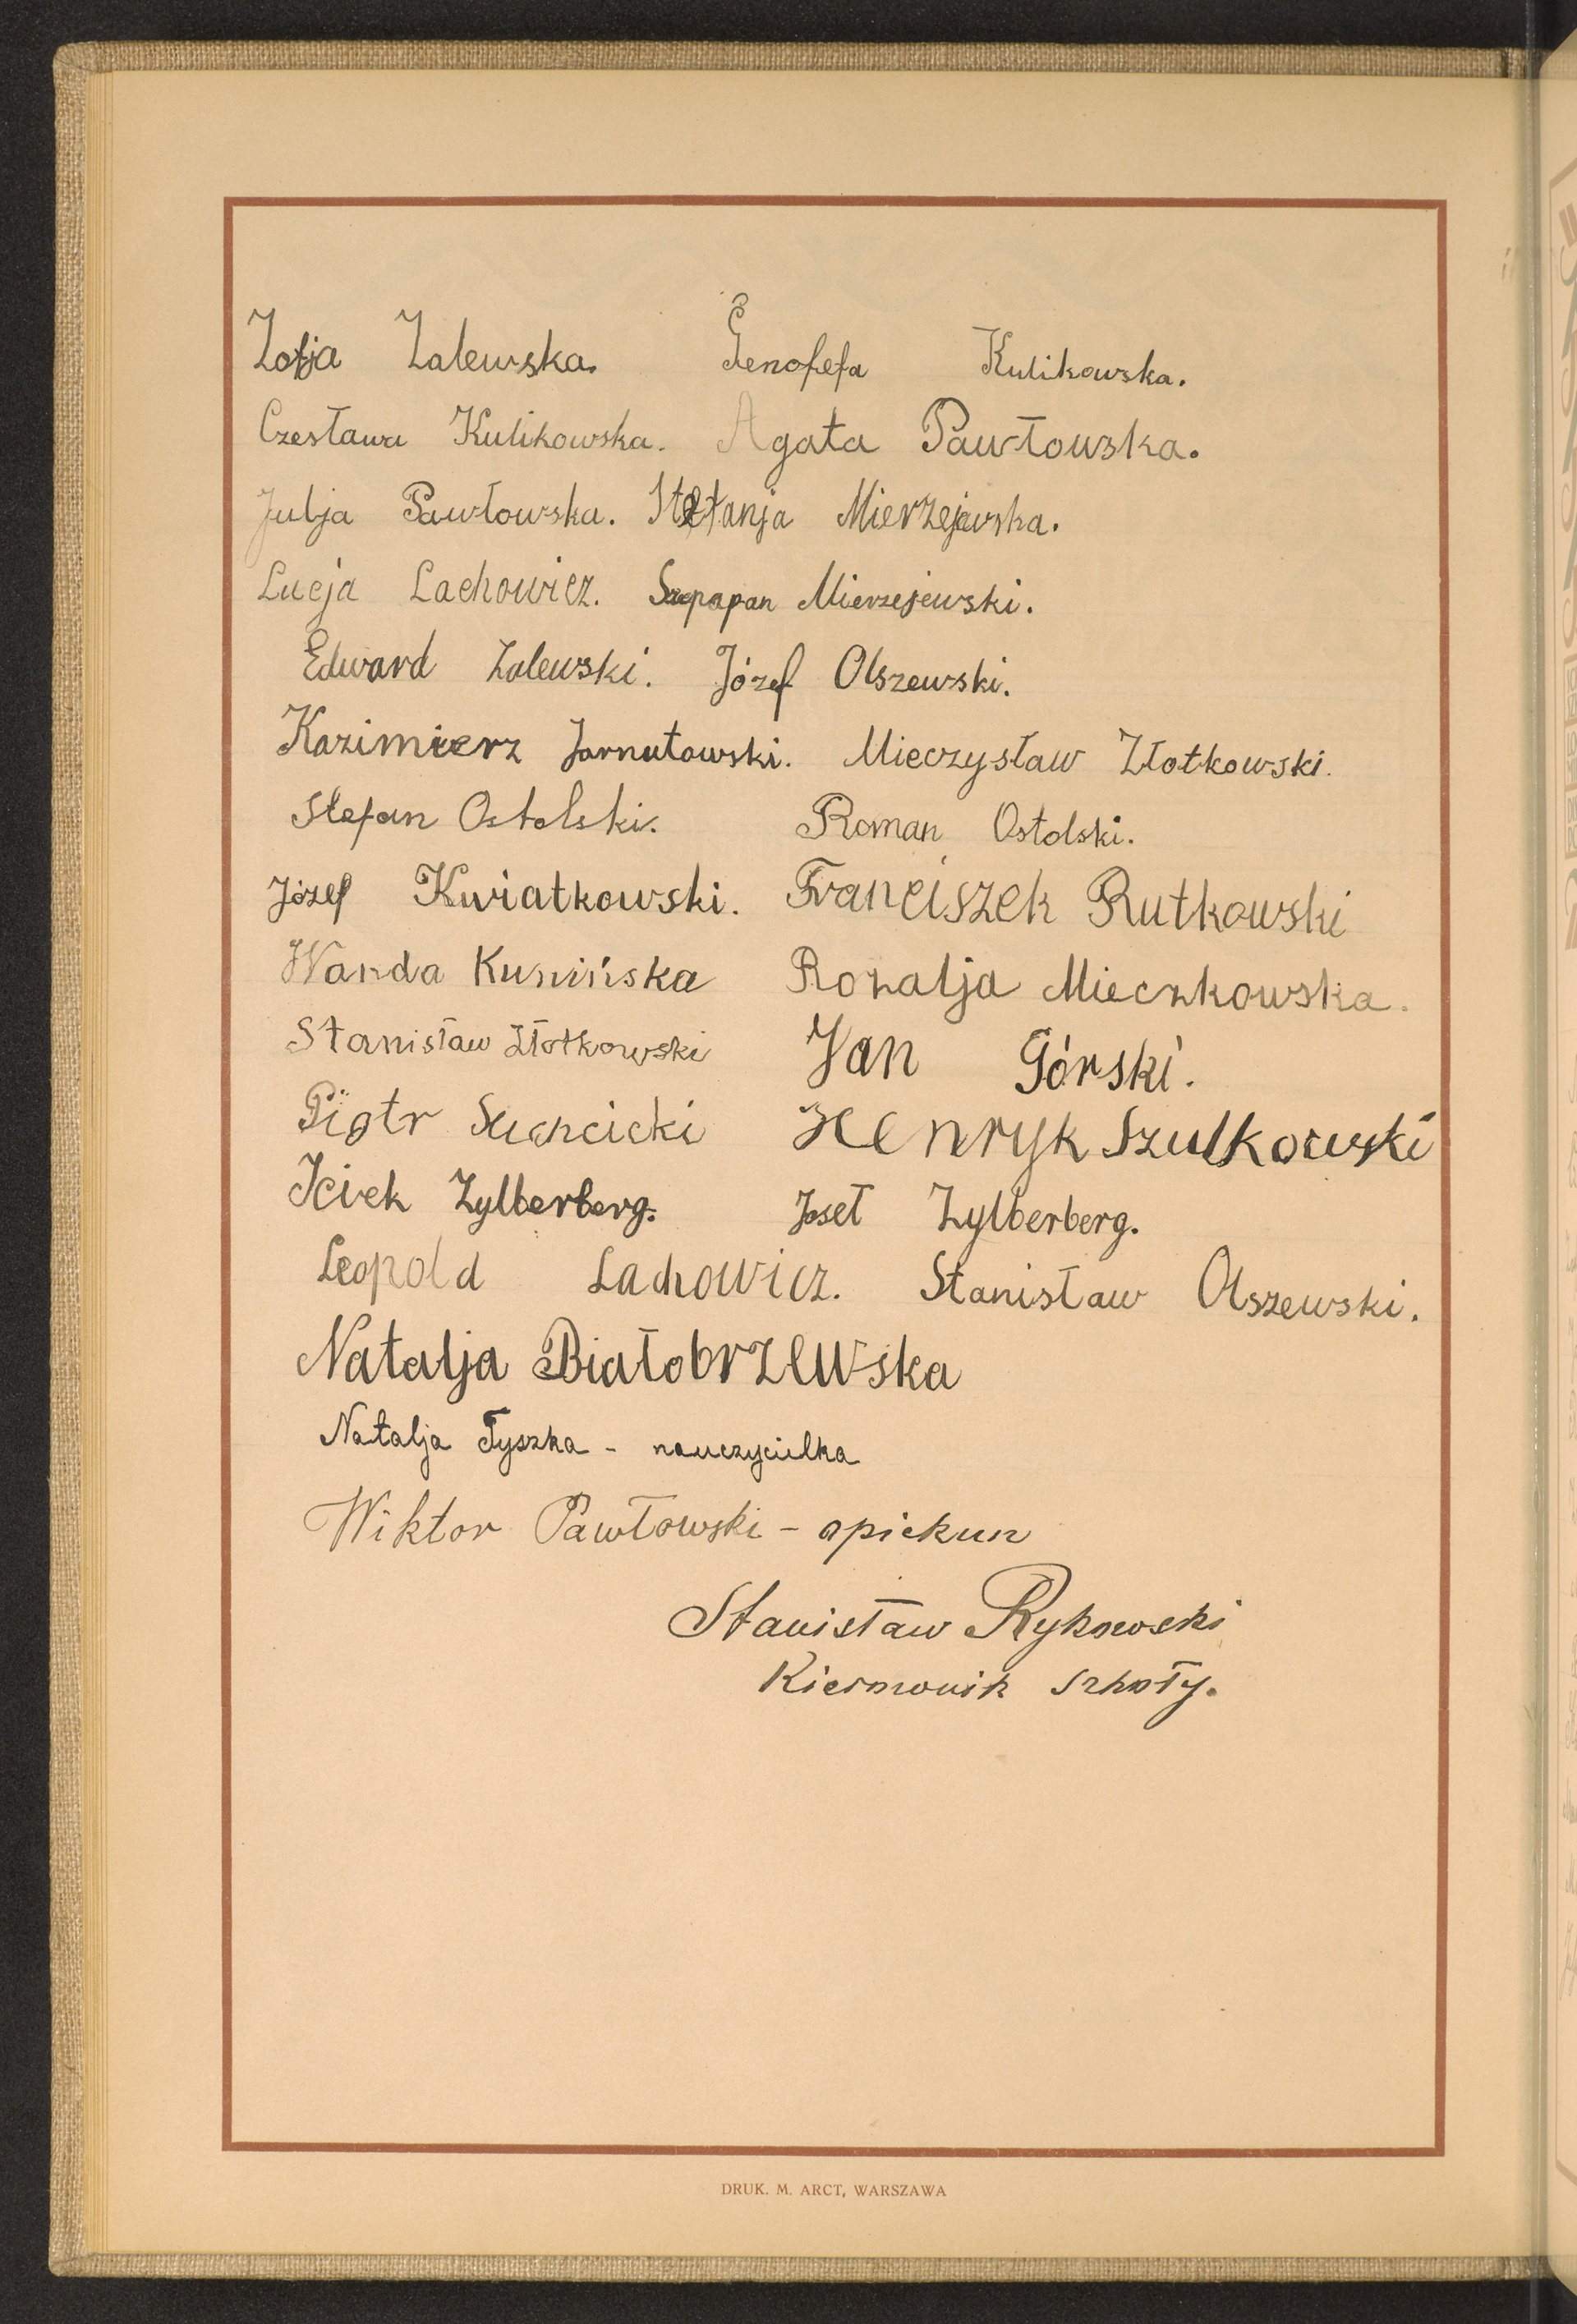 Zofja Zalewska. Genofefa Kulikowska.
Czesława Kulikowska. Agata Pawłowska.
Julja Pawłowska. Stefanja Mierzejewska.
Lucja Lachowicz. Mierzejewski.
Edward Zalewski. Józef Olszewski.
Kazimierz Jarnutowski. Mieczysław Złotkowski.
Stefan Ostolski. Roman Ostolski.
Józef Kwiatkowski. Franciszek Rutkowski
Wanda Kunińska Rozalja Mieczkowska.
Stanisław Złotkowski Jan Górski.
Piotr Suchcicki Henryk Szulkowski
Icivek Zylberberg. Josef Zylberberg.
Leopold Lachowicz. Stanisław Olszewski.
Natalja Białobrzewska
Natalja Tyszka - nauczycielka
Wiktor Pawłowski - opiekun
Stanisław Rykowski
Kierownik szkoły.
DRUK. M. ARCT, WARSZAWA